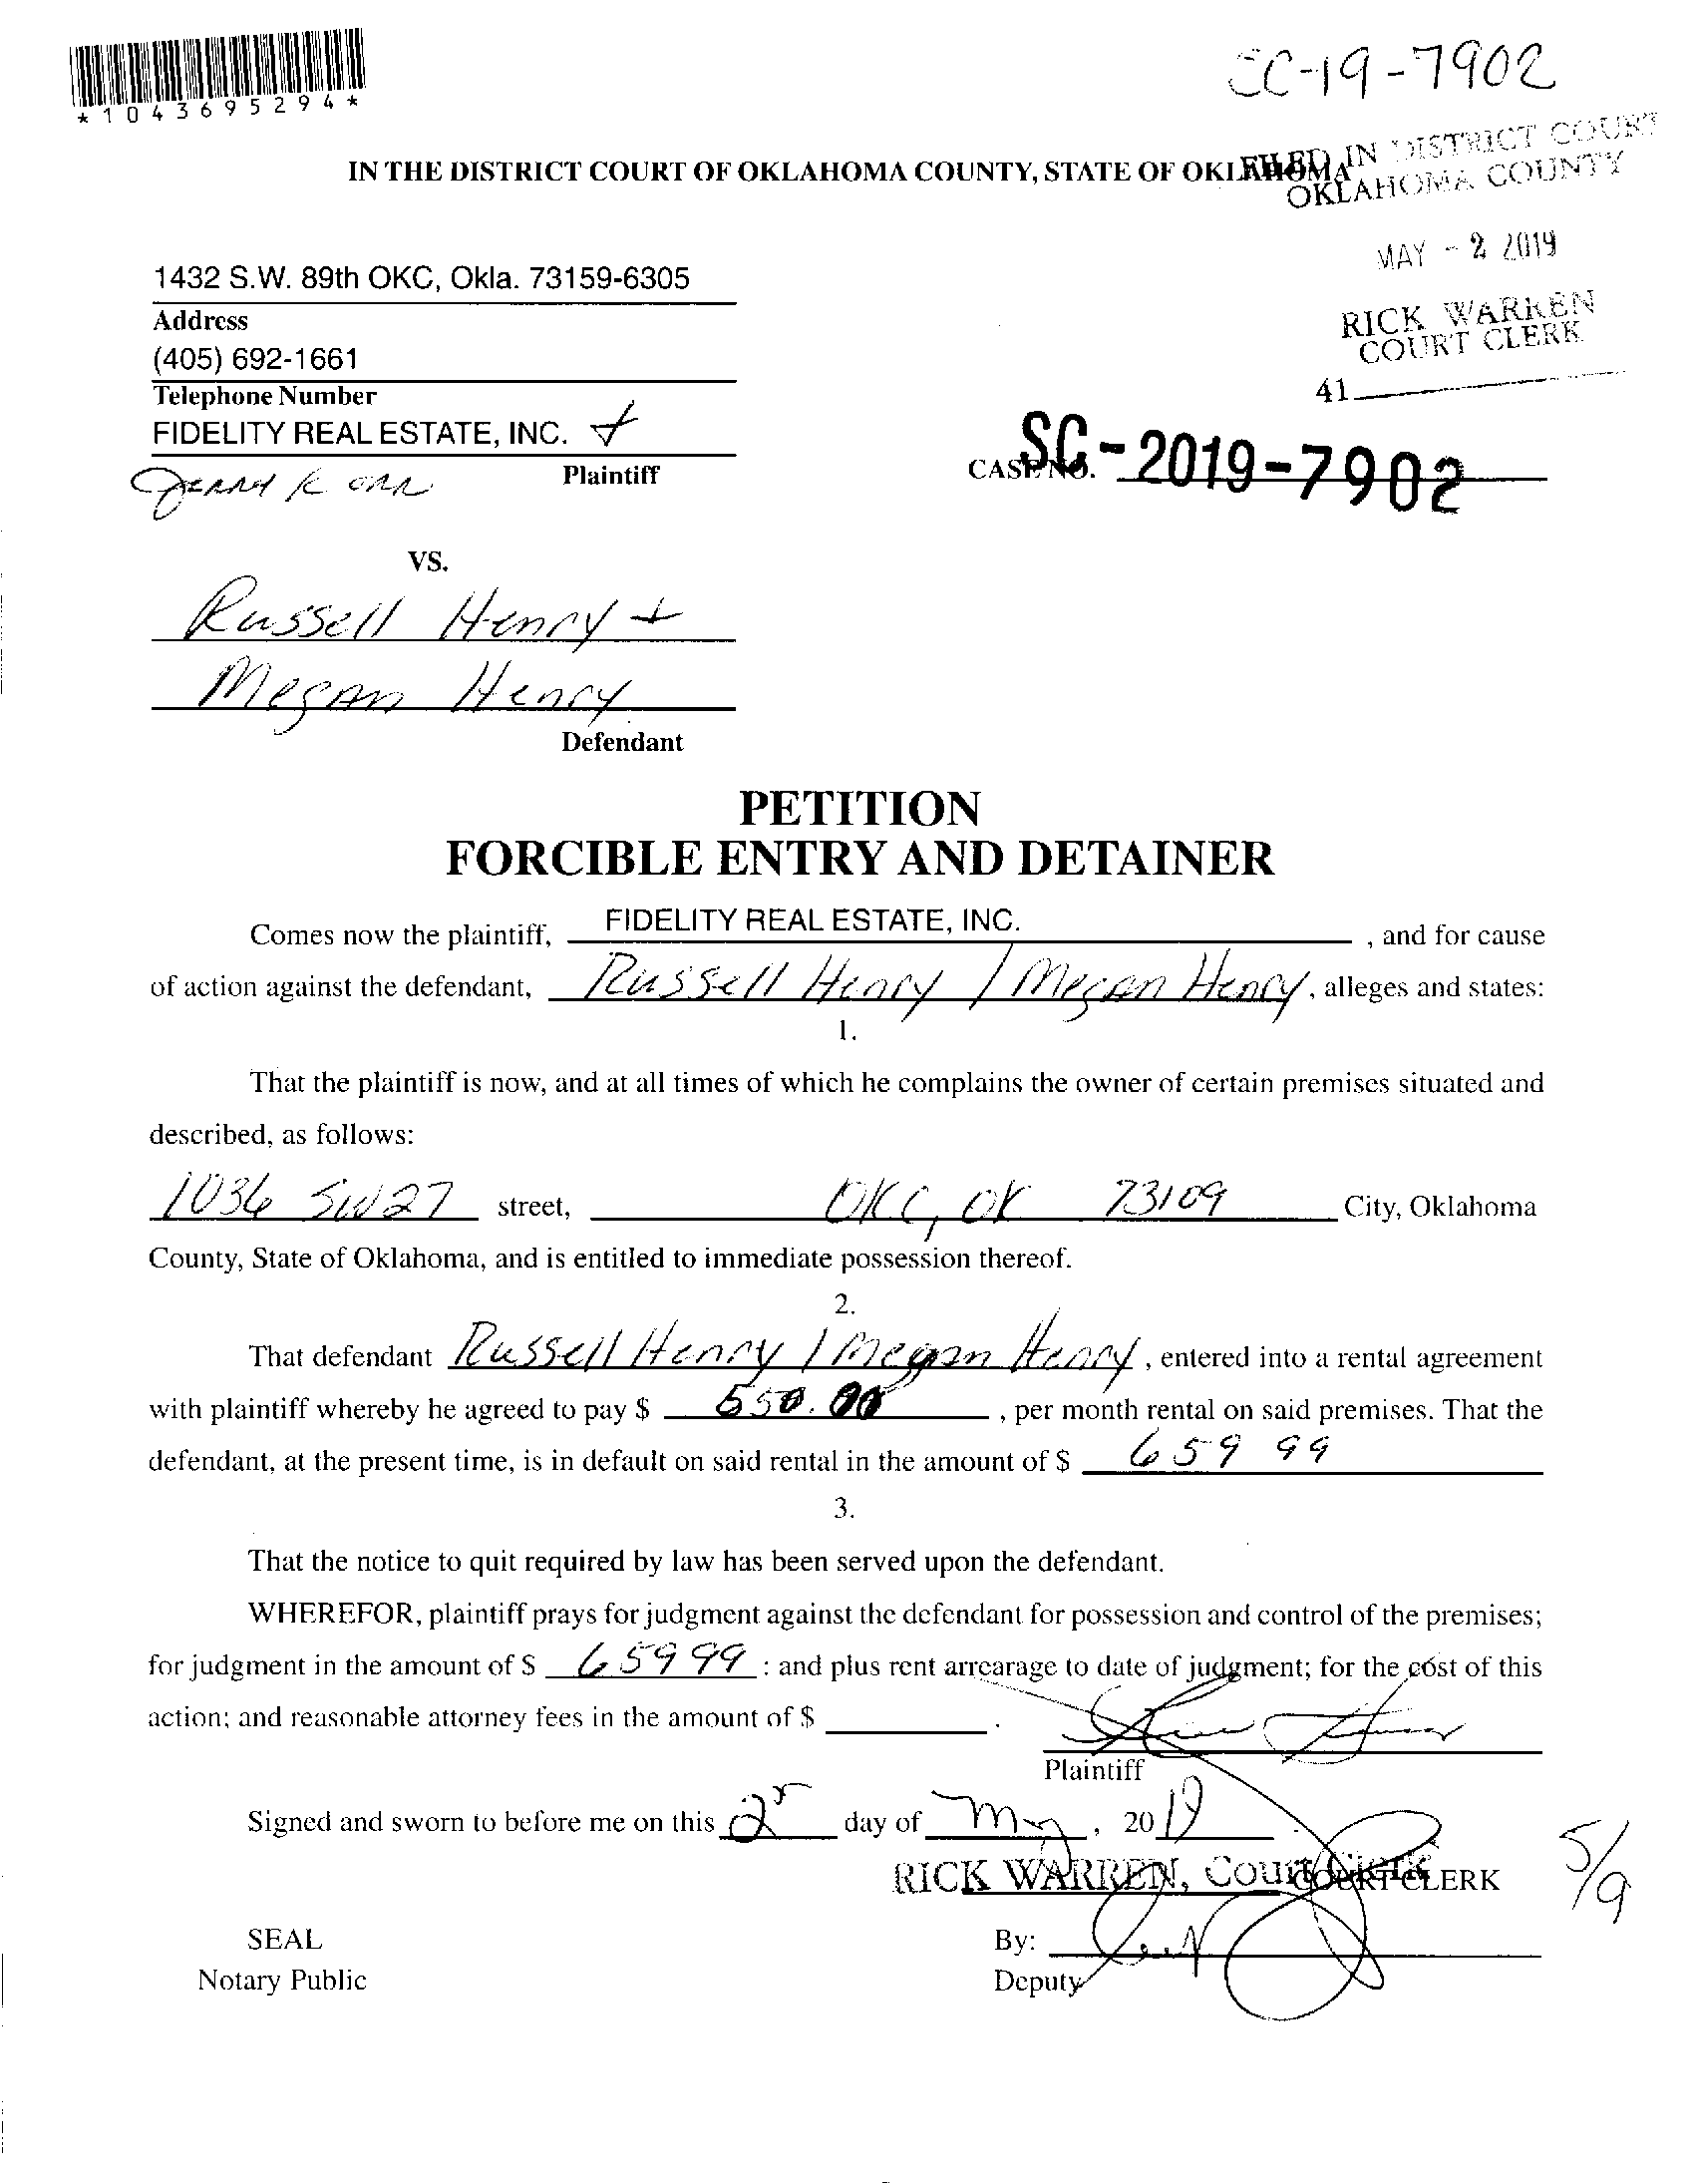 *1043695294*
SC-19-7902
IN THE DISTRICT COURT OF OKLAHOMA COUNTY, STATE OF OKLAHOMA
FILED IN DISTRICT COURT
OKLAHOMA COUNTY
MAY - 2 2019
RICK WARREN
COURT CLERK
41
1432 S.W. 89th OKC, Okla. 73159-6305
Address
(405) 692-1661
Telephone Number
FIDELITY REAL ESTATE, INC. +
Plaintiff
Jerry K Orr
CASE NO. SC-2019-7902
VS.
Russell Henry +
Megan Henry
Defendant
PETITION
FORCIBLE ENTRY AND DETAINER
Comes now the plaintiff, FIDELITY REAL ESTATE, INC. , and for cause
of action against the defendant, Russell Henry / Megan Henry , alleges and states:
1.
That the plaintiff is now, and at all times of which he complains the owner of certain premises situated and
described, as follows:
1036 SW 27 street, OKC, OK 73109 City, Oklahoma
County, State of Oklahoma, and is entitled to immediate possession thereof.
2.
That defendant Russell Henry / Megan Henry , entered into a rental agreement
with plaintiff whereby he agreed to pay $ 550.00 , per month rental on said premises. That the
defendant, at the present time, is in default on said rental in the amount of $ 659 99
3.
That the notice to quit required by law has been served upon the defendant.
WHEREFOR, plaintiff prays for judgment against the defendant for possession and control of the premises;
for judgment in the amount of $ 659 99 : and plus rent arrearage to date of judgment; for the cost of this
action; and reasonable attorney fees in the amount of $ .
Plaintiff
Signed and sworn to before me on this 2 day of May , 20 19 .
RICK WARREN, Court Clerk
COURT CLERK
5/9
SEAL
By:
Notary Public
Deputy